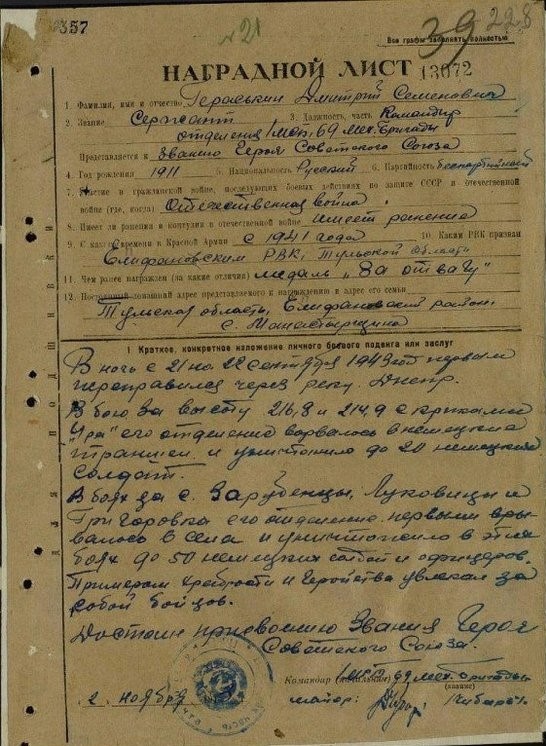 357
№ 21
39 228
Все графы заполнять полностью
НАГРАДНОЙ ЛИСТ 13072
1 Фамилия, имя и отчество Гераськин Дмитрий Семенович
2. Звание Сержант 3. Должность, часть Командир
отделения 1 мсб, 69 мех. бригады
Представляется к Званию Героя Советского Союза
4. Год рождения 1911 5. Национальность Русский 6. Партийность беспартийный
7. Участие в гражданской войне, последующих боевых действиях по защите СССР и отечественной
войне (где, когда) Отечественная война
8. Имеет ли ранения и контузии в отечественной войне имеет ранения
9. С какого времени в Красной Армии с 1941 года 10. Каким РВК призван
Епифановским РВК, Тульской области
11. Чем ранее награжден (за какие отличия) медаль „За отвагу“
12. Постоянный домашний адрес представляемого к награждению и адрес его семьи
Тульская область, Епифановский район,
с. Монастырщино
I. Краткое, конкретное изложение личного боевого подвига или заслуг
В ночь с 21 на 22 сентября 1943 год первым
переправился через реку Днепр.
В бою за высоту 216,8 и 214,9 с криками
„Ура“ его отделение ворвалось в немецкие
траншеи и уничтожило до 20 немецких
солдат.
В боях за с. Зарубенцы, Луковицы и
Григоровка его отделение первыми вры-
валось в села и уничтожило в этих
боях до 50 немецких солдат и офицеров.
Примером храбрости и геройства увлекал за
собой бойцов.
Достоин присвоению Звания Героя
Советского Союза.
Командир (начальник) 69 мех. бригады
(звание)
2 ноября майор: